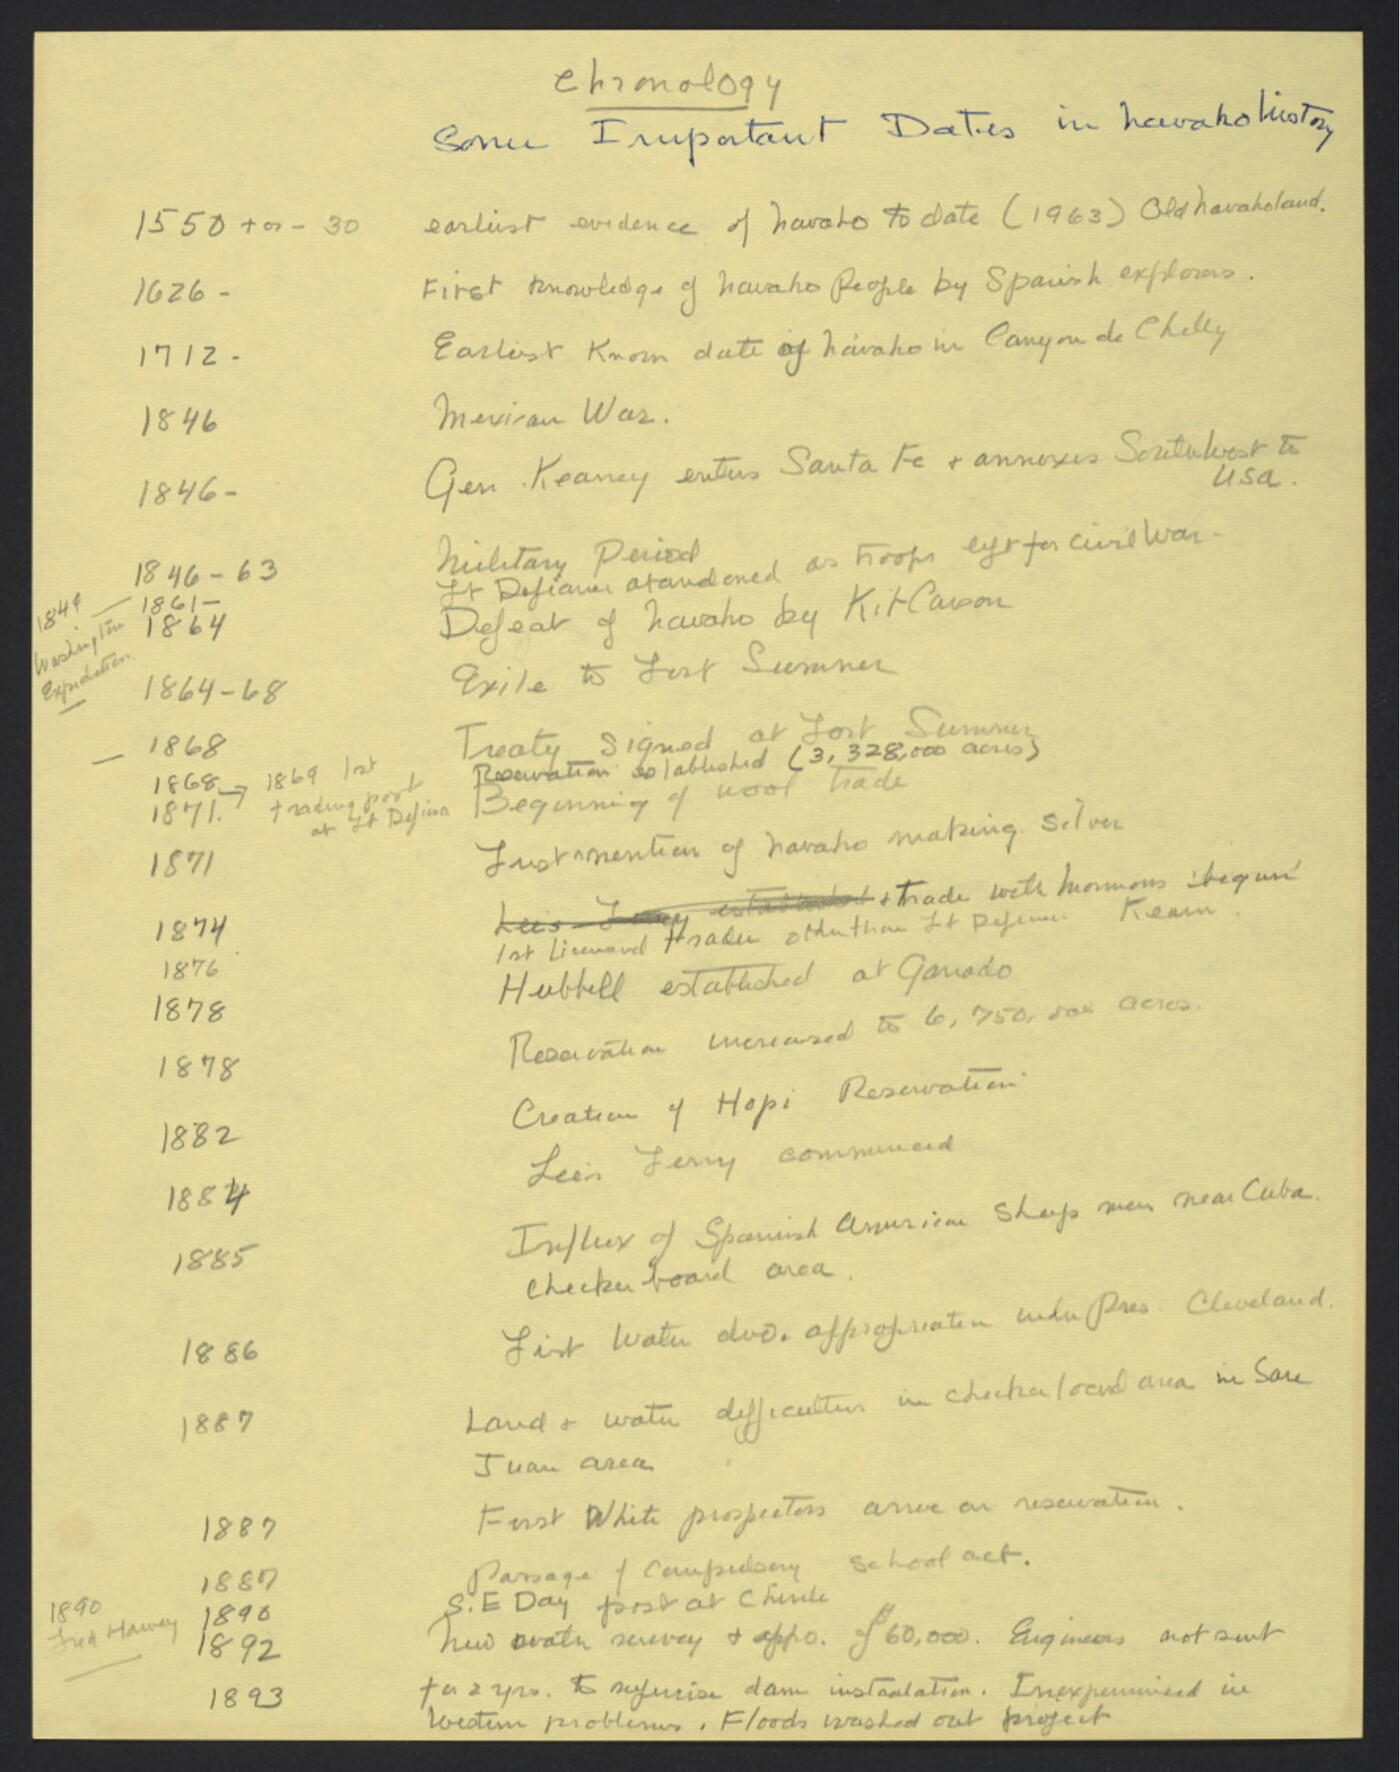 Chronology
Some Important Dates in Navaho history
1550 + or - 30 earliest evidence of Navaho to date (1963) Old Navaholand.
1626 - First knowledge of Navaho People by Spanish explorers.
1712 - Earliest Known date of Navaho in Canyon de Chelly
1846 Mexican War.
1846 - Gen. Kearney enters Santa Fe + annexes Southwest to
USA.
1846-63 Military Period
1861- Ft Defiance abandoned as troops left for Civil War -
1849
Washington
Expedition
1864 Defeat of Navaho by Kit Carson
1864-68 Exile to Fort Sumner
1868 Treaty signed at Fort Sumner
1868 Reservation established (3,328,000 acres)
→ 1869 1st
trading post
at Ft Defiance
1871. Beginning of wool trade
1871 First mention of Navaho making silver
1874 Lee's Ferry established + trade with Mormons begun
1876 1st Licensed trader other than Ft Defiance. Keam.
1878 Hubbell established at Ganado
1878 Reservation increased to 6,750,000 acres.
1882 Creation of Hopi Reservation
1884 Lee's Ferry commenced
1885 Influx of Spanish American sheep men near Cuba.
checkerboard area.
1886 First water dvo. appropriation under Pres. Cleveland.
1887 Land + water difficulties in checkerboard area in San
Juan area
1887 First White prospectors arrive on reservation.
1887 Passage of Compulsory school act.
1890 S.E Day post at Chinle
1890
Fred Harvey
1892 New water survey + appo. of $60,000. Engineers not sent
1893 for 2 yrs. to supervise dam installation. Inexperienced in
Western problems. Floods washed out project